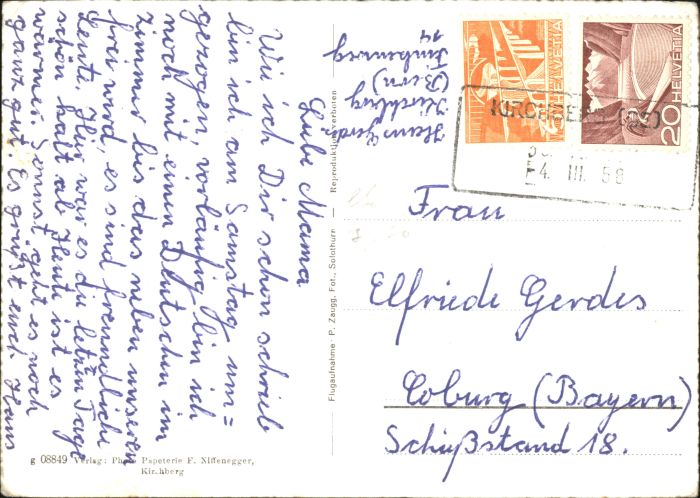 Liebe Mama
Wie ich Dir schon schrieb
bin ich am Samstag um=
gezogen, vorläufig bin ich
noch mit einen Deutschen im
zimmer bis das neben unseren
frei wird, es sind freundliche
Leute. Hier war es die letzen Tage
schön kalt ab Heute ist es
wärmer. Sonnst geht es noch
ganz gut. Es grüsst euch Hans
Hans Gerdes
Kirchberg
(Bern)
14
HELVETIA
20 HELVETIA
KIRCHBERG
4. III. 58
Frau
Elfriede Gerdes
Coburg (Bayern)
Schießstand 18.
Flugaufnahme · P. Zaugg. Fot., Solothurn — Reproduktion verboten
g 08849 Verlag: Photo Papeterie F. Niffenegger,
Kirchberg